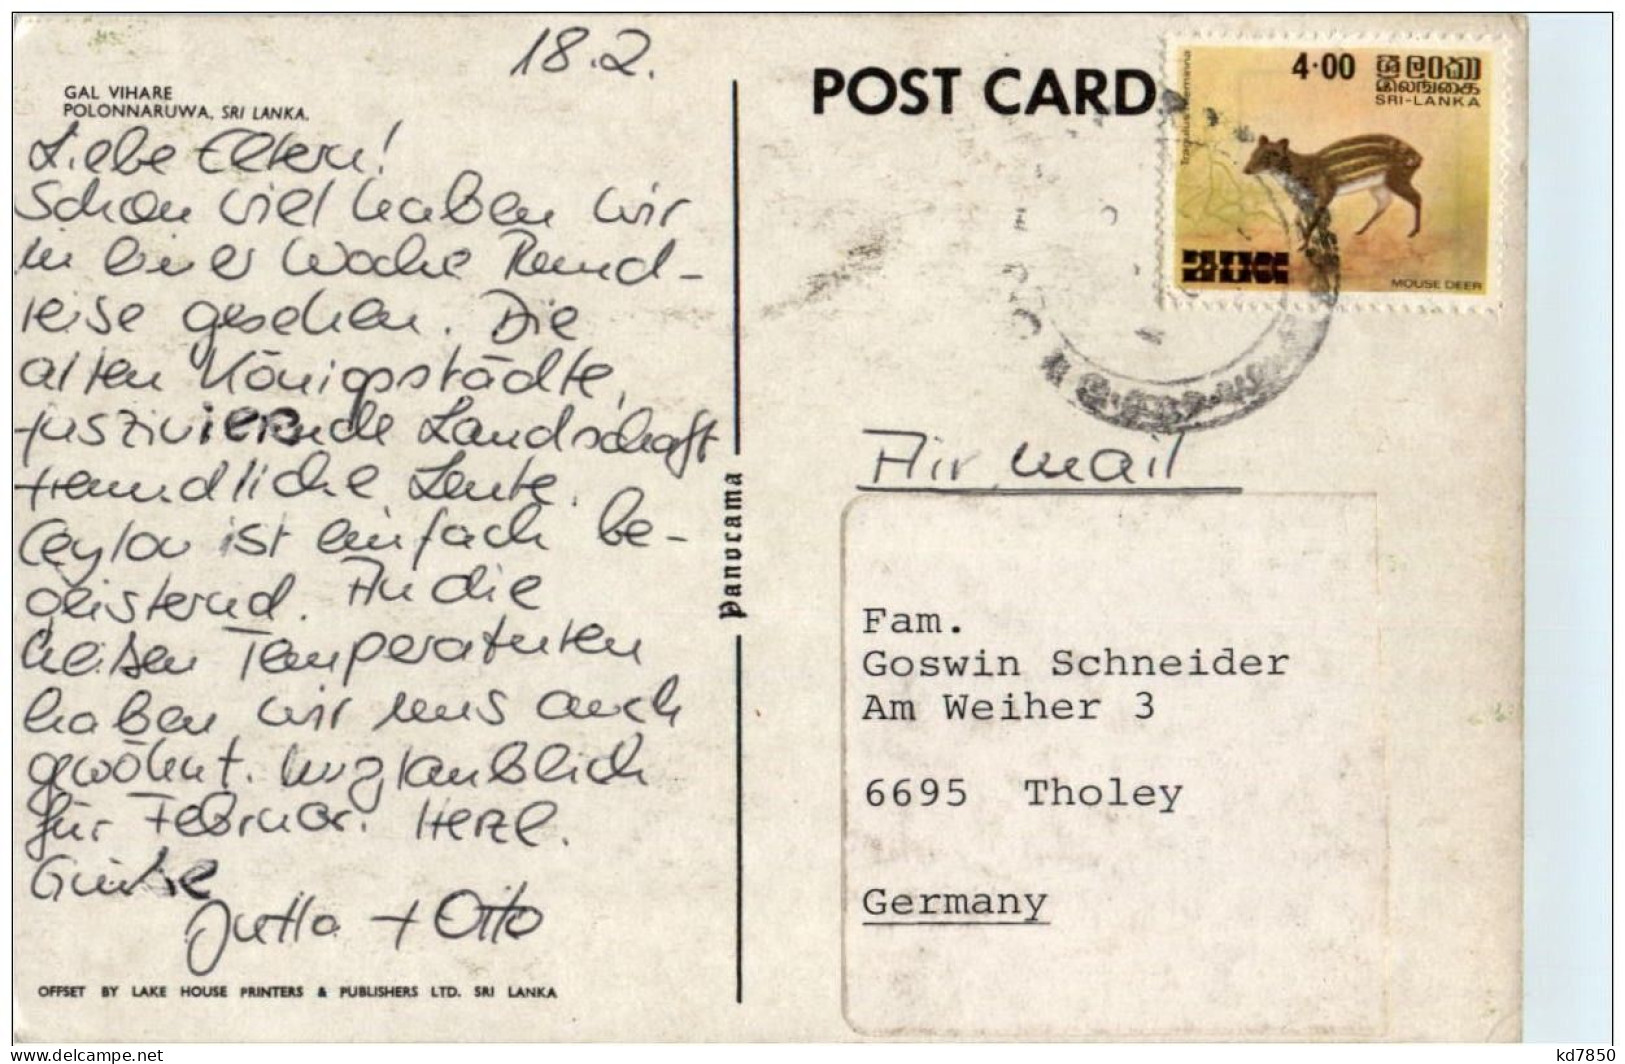 18.2.
GAL VIHARE
POLONNARUWA, SRI LANKA.
Liebe Eltern!
Schon viel haben wir
in einer Woche Rund-
reise gesehen. Die
alten Königsstädte,
faszinierende Landschaft
freundliche Leute.
Ceylon ist einfach be-
geisternd. An die
heißen Temperaturen
haben wir uns auch
gewöhnt. Unglaublich
für Februar. Herzl.
Grüße
Jutta + Otto
OFFSET BY LAKE HOUSE PRINTERS & PUBLISHERS LTD. SRI LANKA
Panorama
POST CARD
4·00
ශ්‍රී ලංකා
இலங்கை
SRI-LANKA
MOUSE DEER
Air mail
Fam.
Goswin Schneider
Am Weiher 3
6695 Tholey
Germany
delcampe.net
kd7850